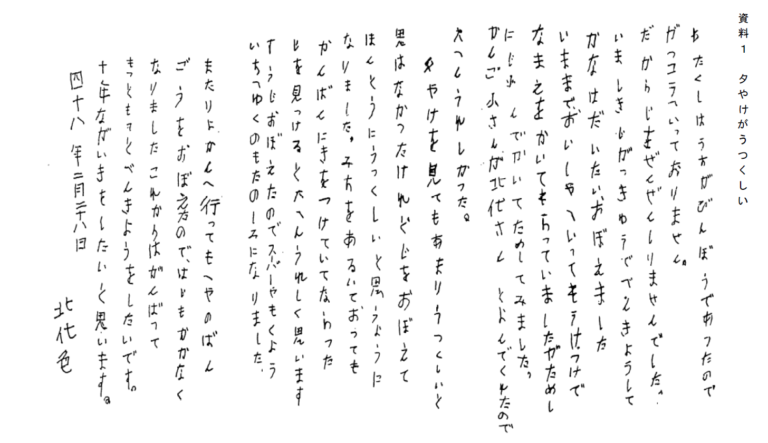 資料1　夕やけがうつくしい
わたくしはうちがびんぼうであったので
がっコうへいっておりません。
だからじをぜんぜんしりませんでした。
いましきじがっきゅうでべんきょうして
かなはだいたいおぼえました
いままでおいしゃへいってもうけつけで
なまえをかいてもらっていましたがためし
にじぶんでかいてためしてみました。
かんごふさんが北代さんとよんでくれたので
大へんうれしかった。
夕やけを見てもあまりうつくしいと
思はなかったけれどじをおぼえて
ほんとうにうつくしいと思うように
なりました。みちをあるいておっても
かんばんにきをつけていてならった
じを見つけると大へんうれしく思います
すうじおぼえたのでスーパーやもくよう
いちへゆくのもたのしみになりました。
またりょかんへ行ってもへやのばん
ごうをおぼえたので、はじもかかなく
なりましたこれからはがんばって
もっともっとべんきょうをしたいです。
十年ながいきをしたいと思います。
四十八年二月二十八日
北代色